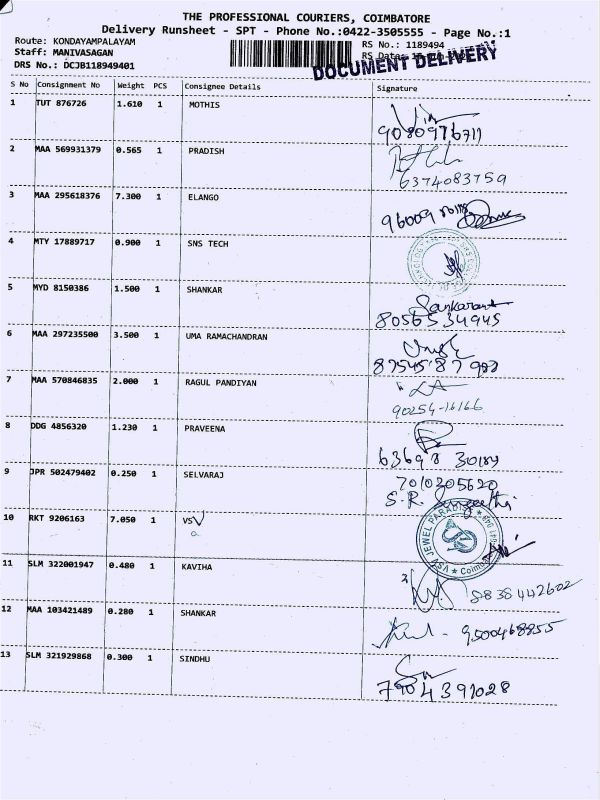 THE PROFESSIONAL COURIERS, COIMBATORE
Delivery Runsheet - SPT - Phone No.:0422-3505555 - Page No.:1
Route: KONDAYAMPALAYAM
Staff: MANIVASAGAN
DRS No.: DCJB118949401
RS No.: 1189494
RS Date:
DOCUMENT DELIVERY
S No Consignment No Weight PCS Consignee Details Signature
1 TUT 876726 1.610 1 MOTHIS
9080976711
2 MAA 569931379 0.565 1 PRADISH
6374083759
3 MAA 295618376 7.300 1 ELANGO
96009
4 MTY 17889717 0.900 1 SNS TECH
5 MYD 8150386 1.500 1 SHANKAR
Sankaran
8056534945
6 MAA 297235500 3.500 1 UMA RAMACHANDRAN
87545 87
7 MAA 570846835 2.000 1 RAGUL PANDIYAN
90254-16166
8 DDG 4856320 1.230 1 PRAVEENA
63698 30189
9 JPR 502479402 0.250 1 SELVARAJ
7010205620
S.R. Sangeetha
10 RKT 9206163 7.050 1 VSV
VSV JEWEL PARADISE
11 SLM 322001947 0.480 1 KAVIHA
8838442602
12 MAA 103421489 0.280 1 SHANKAR
- 9500468855
13 SLM 321929868 0.300 1 SINDHU
7904391028